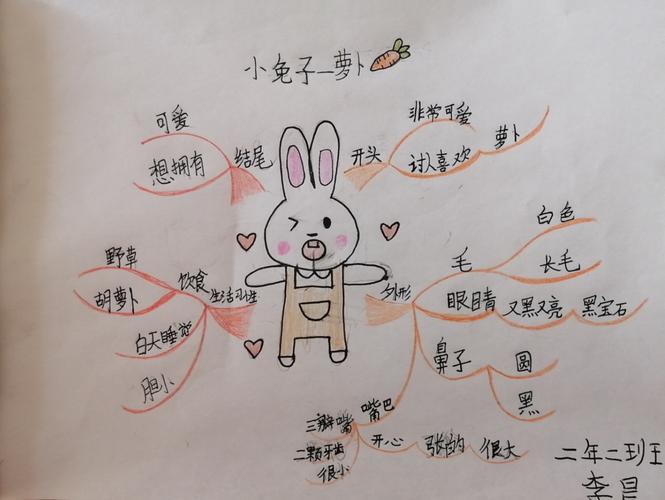 小兔子—萝卜
开头
非常可爱
讨人喜欢
萝卜
外形
毛
白色
长毛
眼睛
又黑又亮
黑宝石
鼻子
圆
黑
嘴巴
三瓣嘴
二颗牙齿
很小
开心
张的
很大
生活习性
饮食
野草
胡萝卜
白天睡觉
胆小
结尾
可爱
想拥有
二年二班王
李